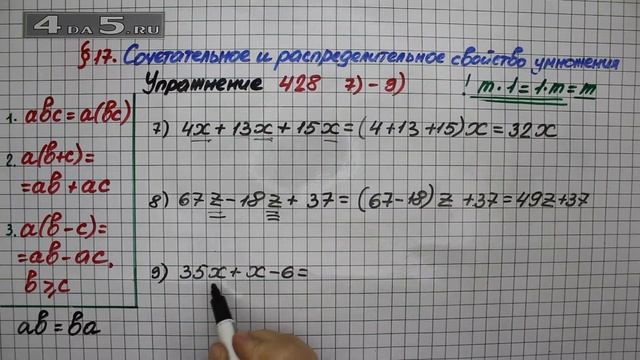 4DA5.RU
§17. Сочетательное и распределительное свойство умножения
Упражнение 428 7)-9)
! m·1=1·m=m
1. abc=a(bc)
2. a(b+c)=
=ab+ac
3. a(b-c)=
=ab-ac,
b⩾c
ab=ba
7) 4x+13x+15x=(4+13+15)x=32x
8) 67z-18z+37=(67-18)z+37=49z+37
9) 35x+x-6=